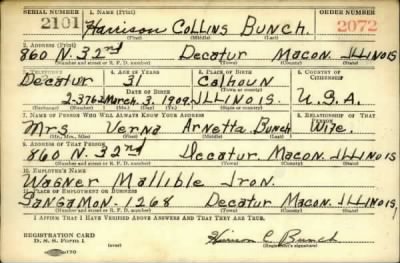 SERIAL NUMBER 1. NAME (Print) ORDER NUMBER
2101 Harrison Collins Bunch. 2072
(First) (Middle) (Last)
2. ADDRESS (Print)
860 N. 32nd Decatur Macon. ILLINOIS
(Number and street or R. F. D. number) (Town) (County) (State)
3. TELEPHONE 4. AGE IN YEARS 5. PLACE OF BIRTH 6. COUNTRY OF CITIZENSHIP
Decatur 31 Calhoun
DATE OF BIRTH
2-3762 March. 3. 1909. ILLINOIS. U.S.A.
(Exchange) (Number) (Mo.) (Day) (Yr.) (State or country)
7. NAME OF PERSON WHO WILL ALWAYS KNOW YOUR ADDRESS 8. RELATIONSHIP OF THAT PERSON
Mrs Verna Arnetta Bunch Wife.
(Mr., Mrs., Miss) (First) (Middle) (Last)
9. ADDRESS OF THAT PERSON
860 N. 32nd Decatur. Macon. ILLINOIS
(Number and street or R. F. D. number) (Town) (County) (State)
10. EMPLOYER'S NAME
Wagner Mallible Iron.
11. PLACE OF EMPLOYMENT OR BUSINESS
Sangamon. 1268 Decatur Macon. ILLINOIS,
(Number and street or R. F. D. number) (Town) (County) (State)
I AFFIRM THAT I HAVE VERIFIED ABOVE ANSWERS AND THAT THEY ARE TRUE.
REGISTRATION CARD
D. S. S. Form 1
Harrison C. Bunch
(Registrant's signature)